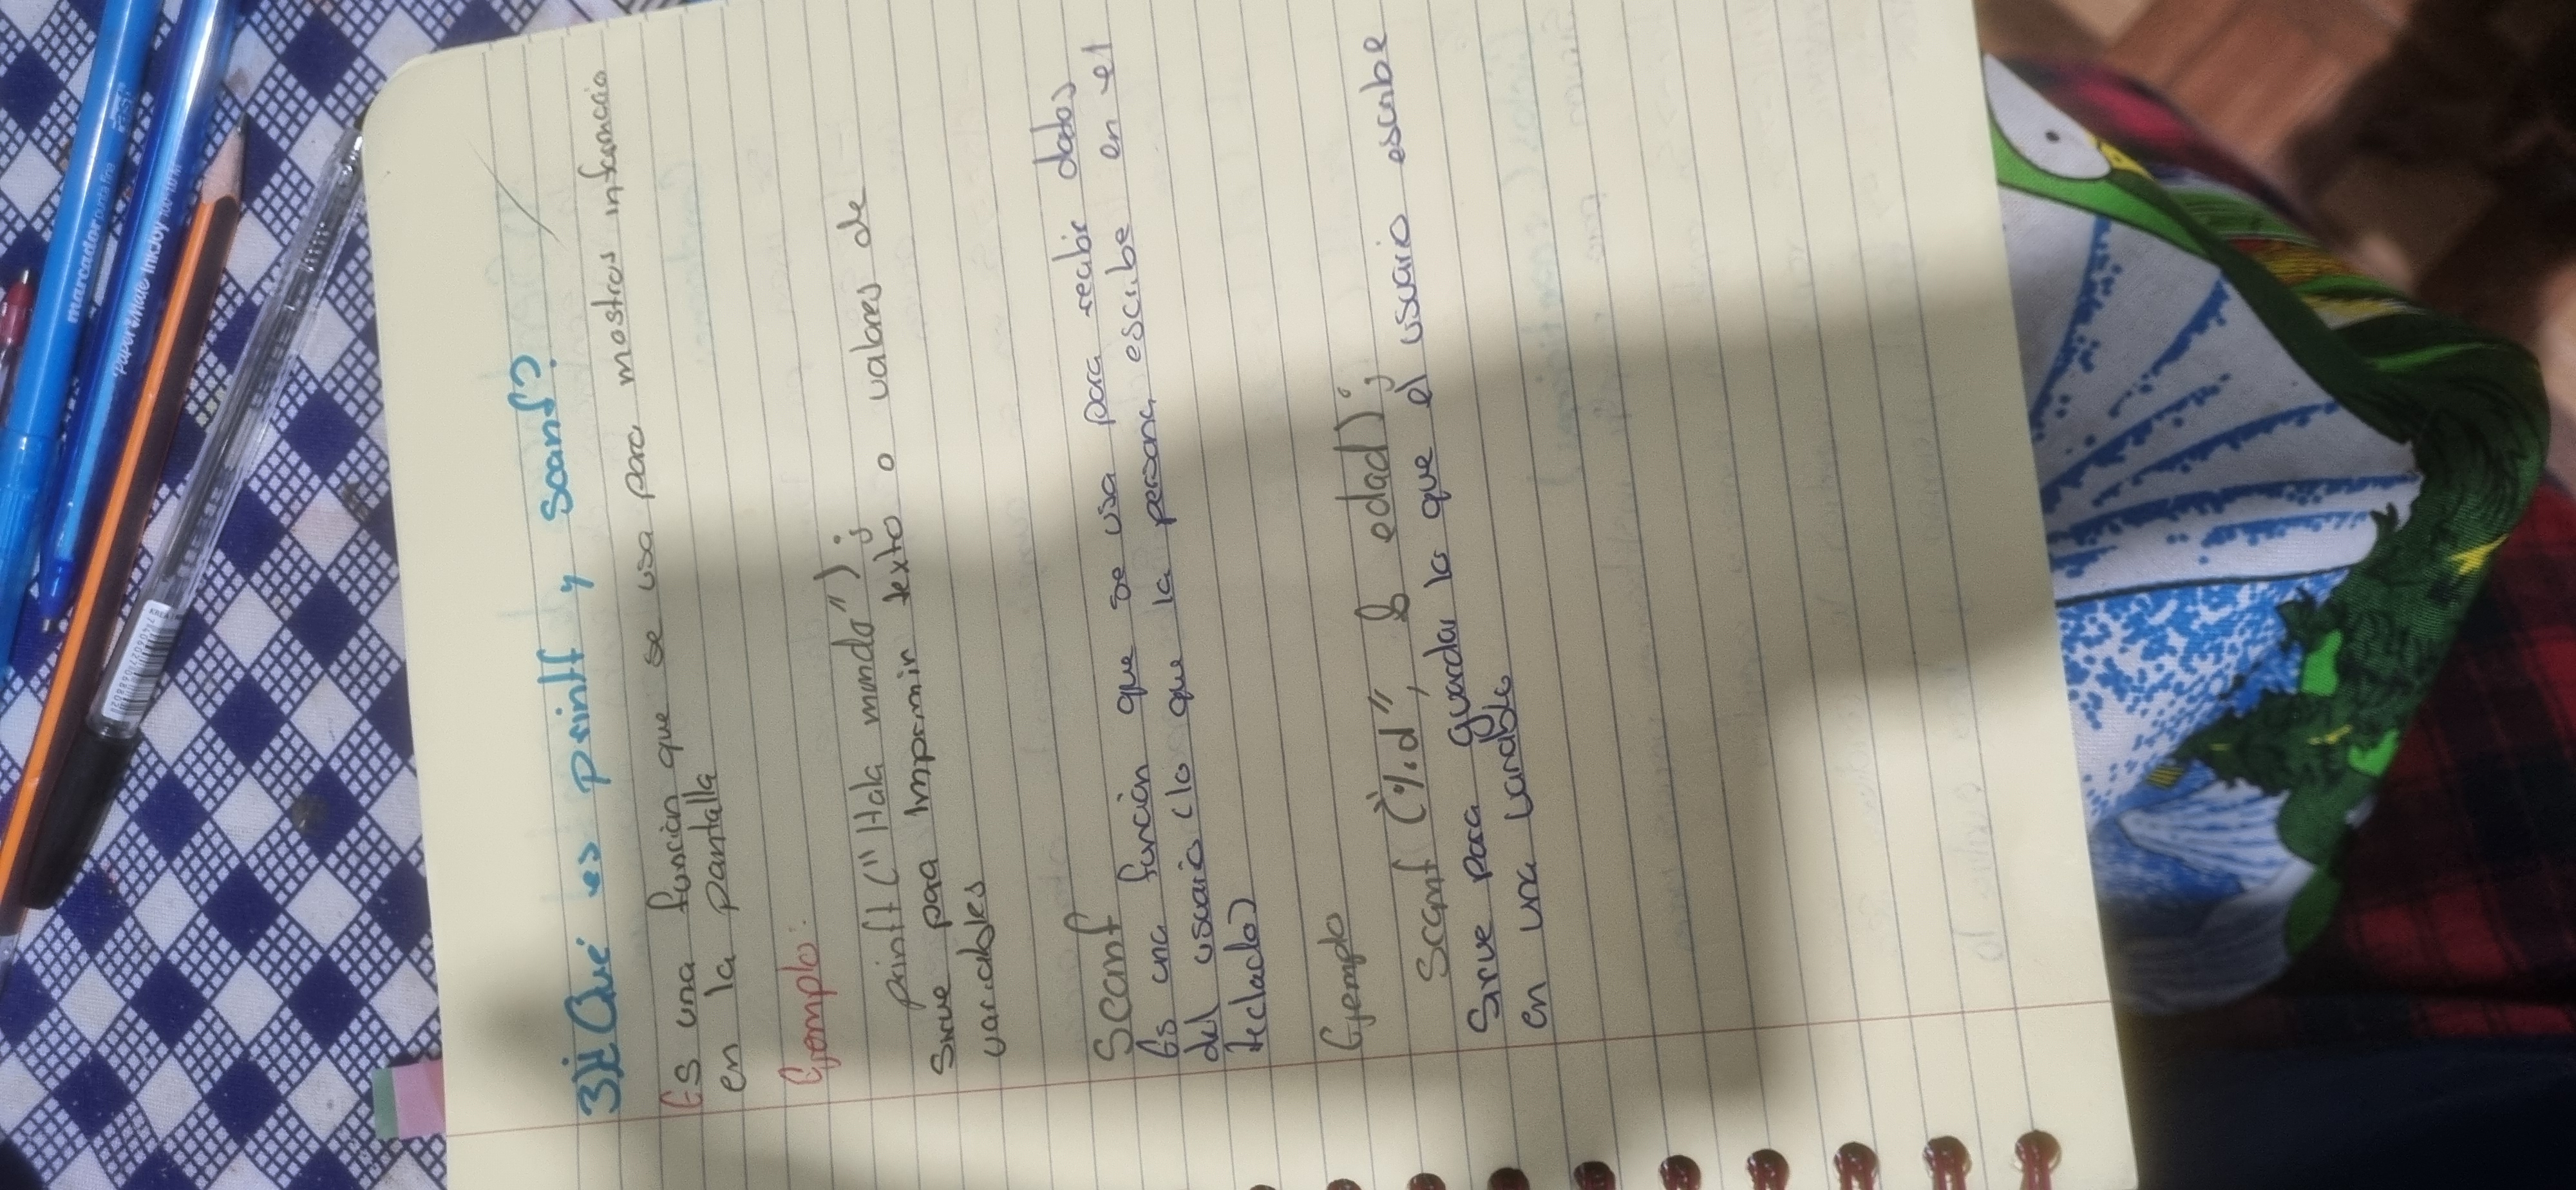 3)¿Qué es printf y scanf?
Es una función que se usa para mostras información
en la pantalla
Ejemplo:
printf ("Hola mundo");
Sirve para imprimir texto o valores de
variables
Scanf
Es una función que se usa para recibir datos
del usuario (lo que la persona escribe en el
teclado)
Ejemplo
Scanf ("%d", & edad);
Sirve para guardar lo que el usuario escribe
en una variable
marcador punta fina
PaperMate InkJoy 100